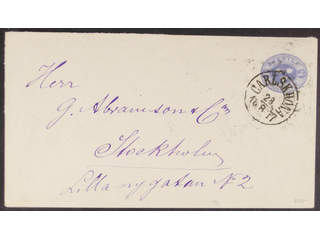 Herr
G. Abramson & Co
Stockholm
Lilla nygatan N 2
CARLSKRONA
28
8
77